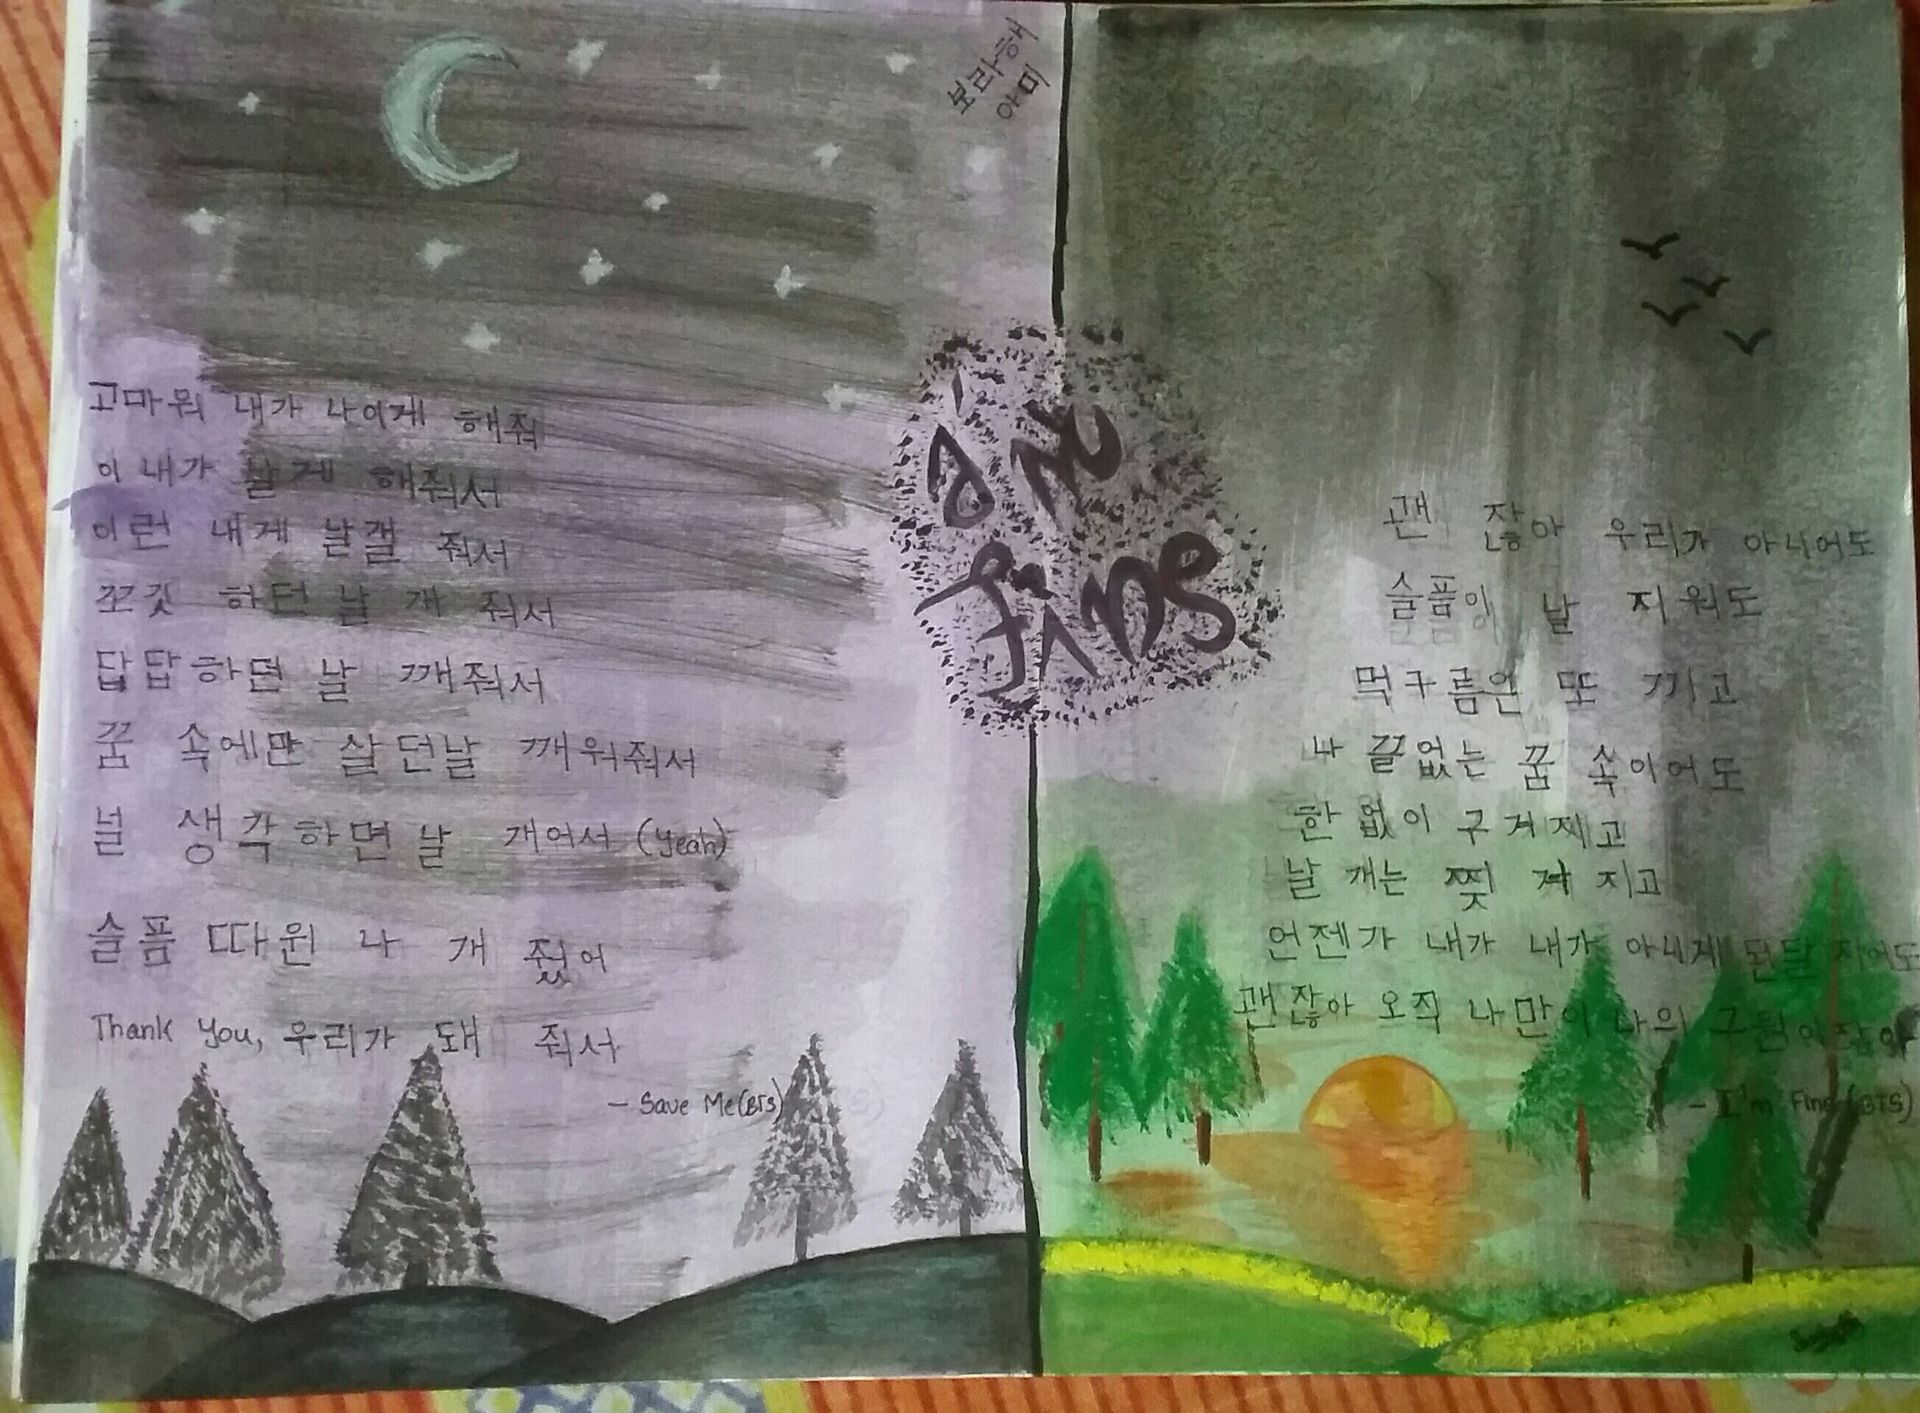 보라해
아미
고마워 내가 나이게 해줘
이 내가 날게 해줘서
이런 내게 날갤 줘서
꼬깃 하던 날 개 줘서
답답하던 날 깨줘서
꿈 속에만 살던날 깨워줘서
널 생각하면 날 개어서 (Yeah)
슬픔 따윈 나 개 줬어
Thank You, 우리가 돼 줘서
- Save Me(BTS)
괜 찮아 우리가 아니어도
슬픔이 날 지워도
먹구름은 또 끼고
나 끝없는 꿈 속이어도
한 없이 구겨지고
날 개는 찢 겨 지고
언젠가 내가 내가 아니게 된달 지어도
괜찮아 오직 나만이 나의 구원이잖아
- I'm Fine (BTS)